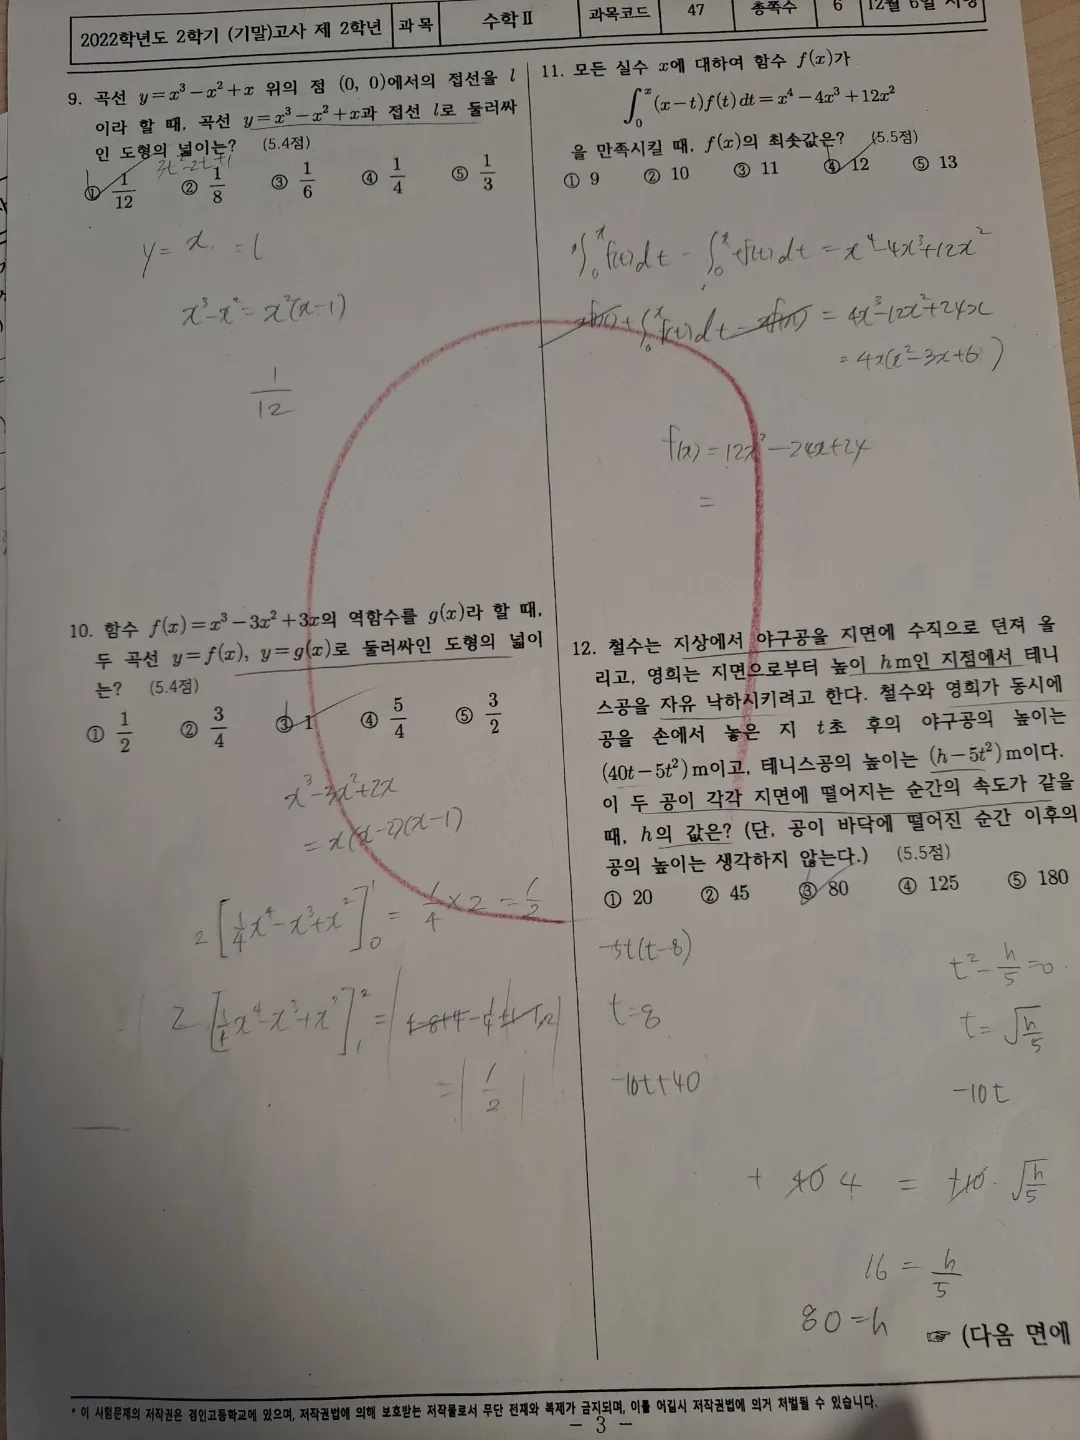 2022학년도 2학기 (기말)고사 제 2학년 과목 수학Ⅱ 과목코드 47 총쪽수 6 12월 6일 시행
9. 곡선 y=x³-x²+x 위의 점 (0, 0)에서의 접선을 l
이라 할 때, 곡선 y=x³-x²+x과 접선 l로 둘러싸
인 도형의 넓이는? (5.4점)
3t²-2t+1
① 1/12 ② 1/8 ③ 1/6 ④ 1/4 ⑤ 1/3
y= x. = l
x³-x²= x²(x-1)
1/12
10. 함수 f(x)=x³-3x²+3x의 역함수를 g(x)라 할 때,
두 곡선 y=f(x), y=g(x)로 둘러싸인 도형의 넓이
는? (5.4점)
① 1/2 ② 3/4 ③ 1 ④ 5/4 ⑤ 3/2
x³-3x²+2x
= x(x-2)(x-1)
2[1/4x⁴-x³+x²]₀¹ = 1/4×2 = 1/2
2[1/4x⁴-x³+x²]₁² =
=|1/2|
11. 모든 실수 x에 대하여 함수 f(x)가
∫₀ˣ(x-t)f(t)dt=x⁴-4x³+12x²
을 만족시킬 때, f(x)의 최솟값은? (5.5점)
① 9 ② 10 ③ 11 ④ 12 ⑤ 13
x∫₀ˣf(t)dt - ∫₀ˣtf(t)dt = x⁴-4x³+12x²
xf(x)+∫₀ˣf(t)dt-xf(x) = 4x³-12x²+24x
= 4x(x²-3x+6)
f(x) = 12x²-24x+24
=
12. 철수는 지상에서 야구공을 지면에 수직으로 던져 올
리고, 영희는 지면으로부터 높이 h m인 지점에서 테니
스공을 자유 낙하시키려고 한다. 철수와 영희가 동시에
공을 손에서 놓은 지 t초 후의 야구공의 높이는
(40t-5t²)m이고, 테니스공의 높이는 (h-5t²)m이다.
이 두 공이 각각 지면에 떨어지는 순간의 속도가 같을
때, h의 값은? (단, 공이 바닥에 떨어진 순간 이후의
공의 높이는 생각하지 않는다.) (5.5점)
① 20 ② 45 ③ 80 ④ 125 ⑤ 180
-5t(t-8)
t=8
-10t+40
t²-h/5=0.
t=√(h/5)
-10t
+40 4 = +10·√(h/5)
16 = h/5
80=h
☞ (다음 면에
* 이 시험문제의 저작권은 경인고등학교에 있으며, 저작권법에 의해 보호받는 저작물로서 무단 전재와 복제가 금지되며, 이를 어길시 저작권법에 의거 처벌될 수 있습니다.
- 3 -